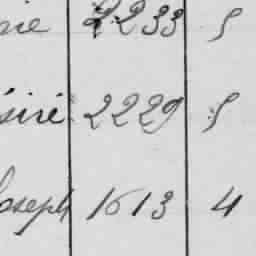 2233 5
siré 2229 5
Joseph 1613 4